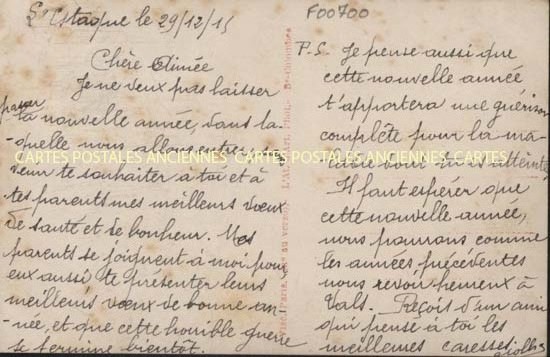 L'Estaque le 29/12/15
F00700
Chère Aimée
Je ne veux pas laisser
passer
la nouvelle année, dans la-
quelle nous allons entrer, sans
te souhaiter à toi et à
tes parents mes meilleurs vœux
de santé et de bonheur. Mes
parents se joignent à moi pour
eux aussi te présenter leurs
meilleurs vœux de bonne an-
née, et que cette horrible guerre
se termine bientôt.
P.S. Je pense aussi que
cette nouvelle année
t'apportera une guérison
complète pour la ma-
ladie dont tu es atteinte
Il faut espérer que
cette nouvelle année,
nous pourrons comme
les années précédentes
nous revoir heureux à
Vals. Reçois d'un ami
qui pense à toi les
meilleures caresses
CARTES POSTALES ANCIENNES CARTES POSTALES ANCIENNES CARTES